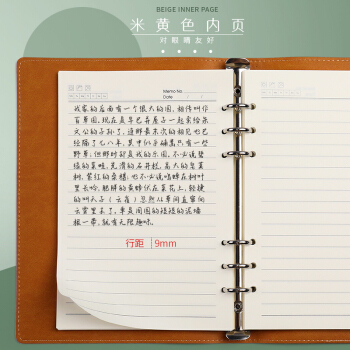 BEIGE INNER PAGE
米黄色内页
对眼睛友好
Memo No.
Date / /
我家的后面有一个很大的园，相传叫作
百草园。现在是早已并屋子一起卖给朱
文公的子孙了，连那最末次的相见也已
经隔了七八年，其中似乎确凿只有一些
野草；但那时却是我的乐园。不必说碧
绿的菜畦，光滑的石井栏，高大的皂荚
树，紫红的桑椹；也不必说鸣蝉在树叶
里长吟，肥胖的黄蜂伏在菜花上，轻捷
的叫天子（云雀）忽然从草间直窜向
云霄里去了。单是周围的短短的泥墙
根一带，就有无限趣味。
行距 9mm